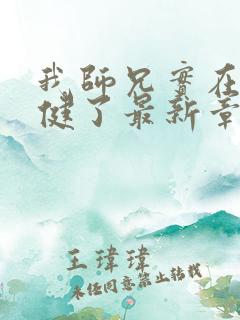 我師兄實在
健了最新章
王瑋瑋
未经同意禁止转载